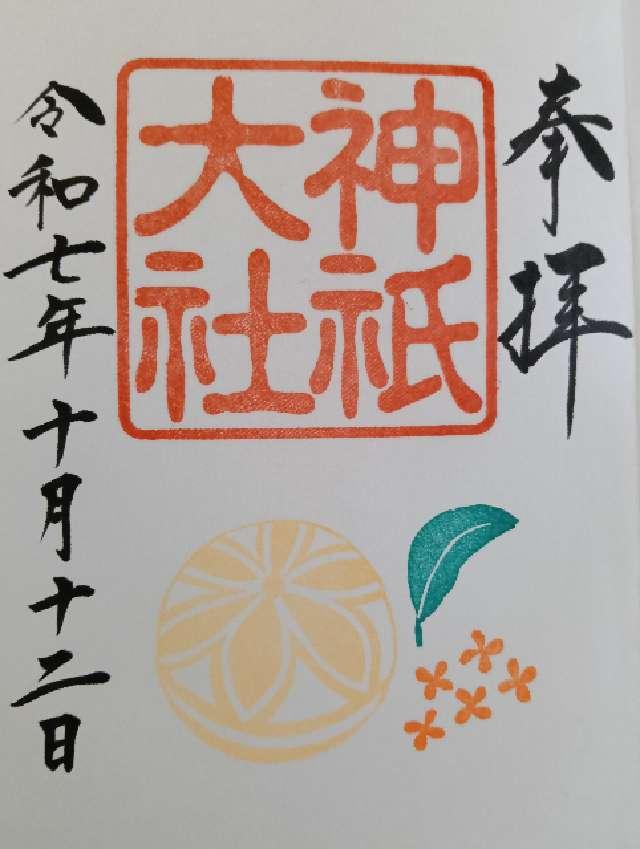 奉拝
神祇
大社
令和七年十月十二日